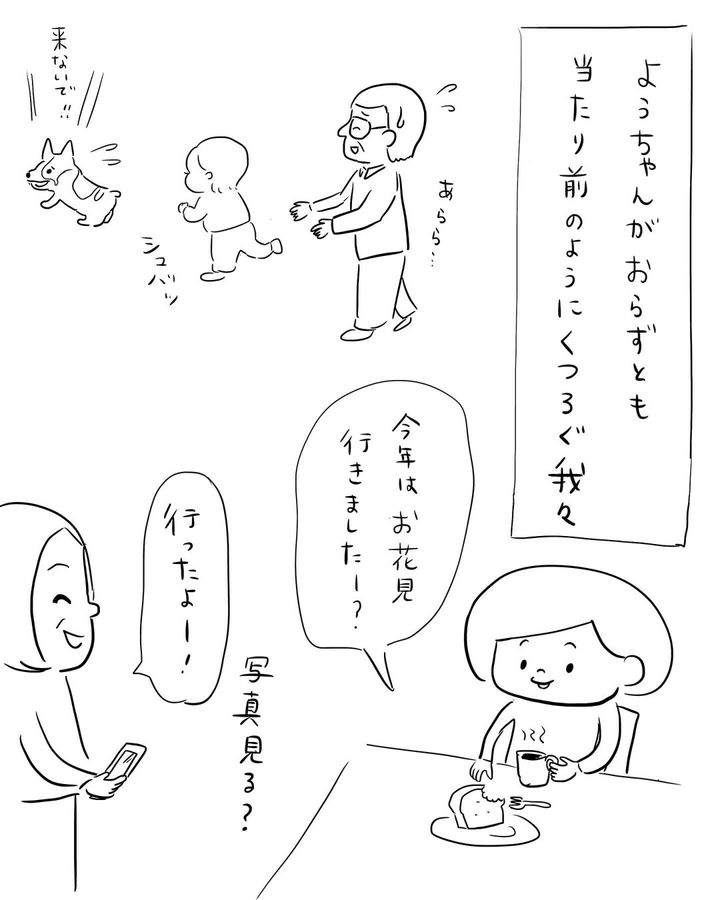 ようちゃんがおらずとも
当たり前のようにくつろぐ我々
来ないで!!
シュバッ
あらら…
今年はお花見
行きましたー?
行ったよー!
写真見る?